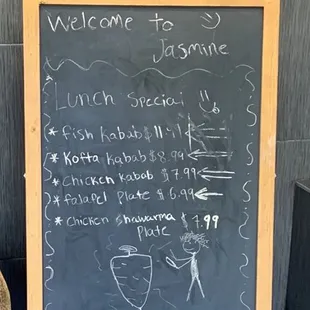 Welcome to
Jasmine
Lunch Special
* fish kabab $ 11.
* Kofta kabab $ 8.99
* chicken kabab $ 7.99
* falafel Plate $ 6.99
* chicken shawarma $ 7.99
Plate